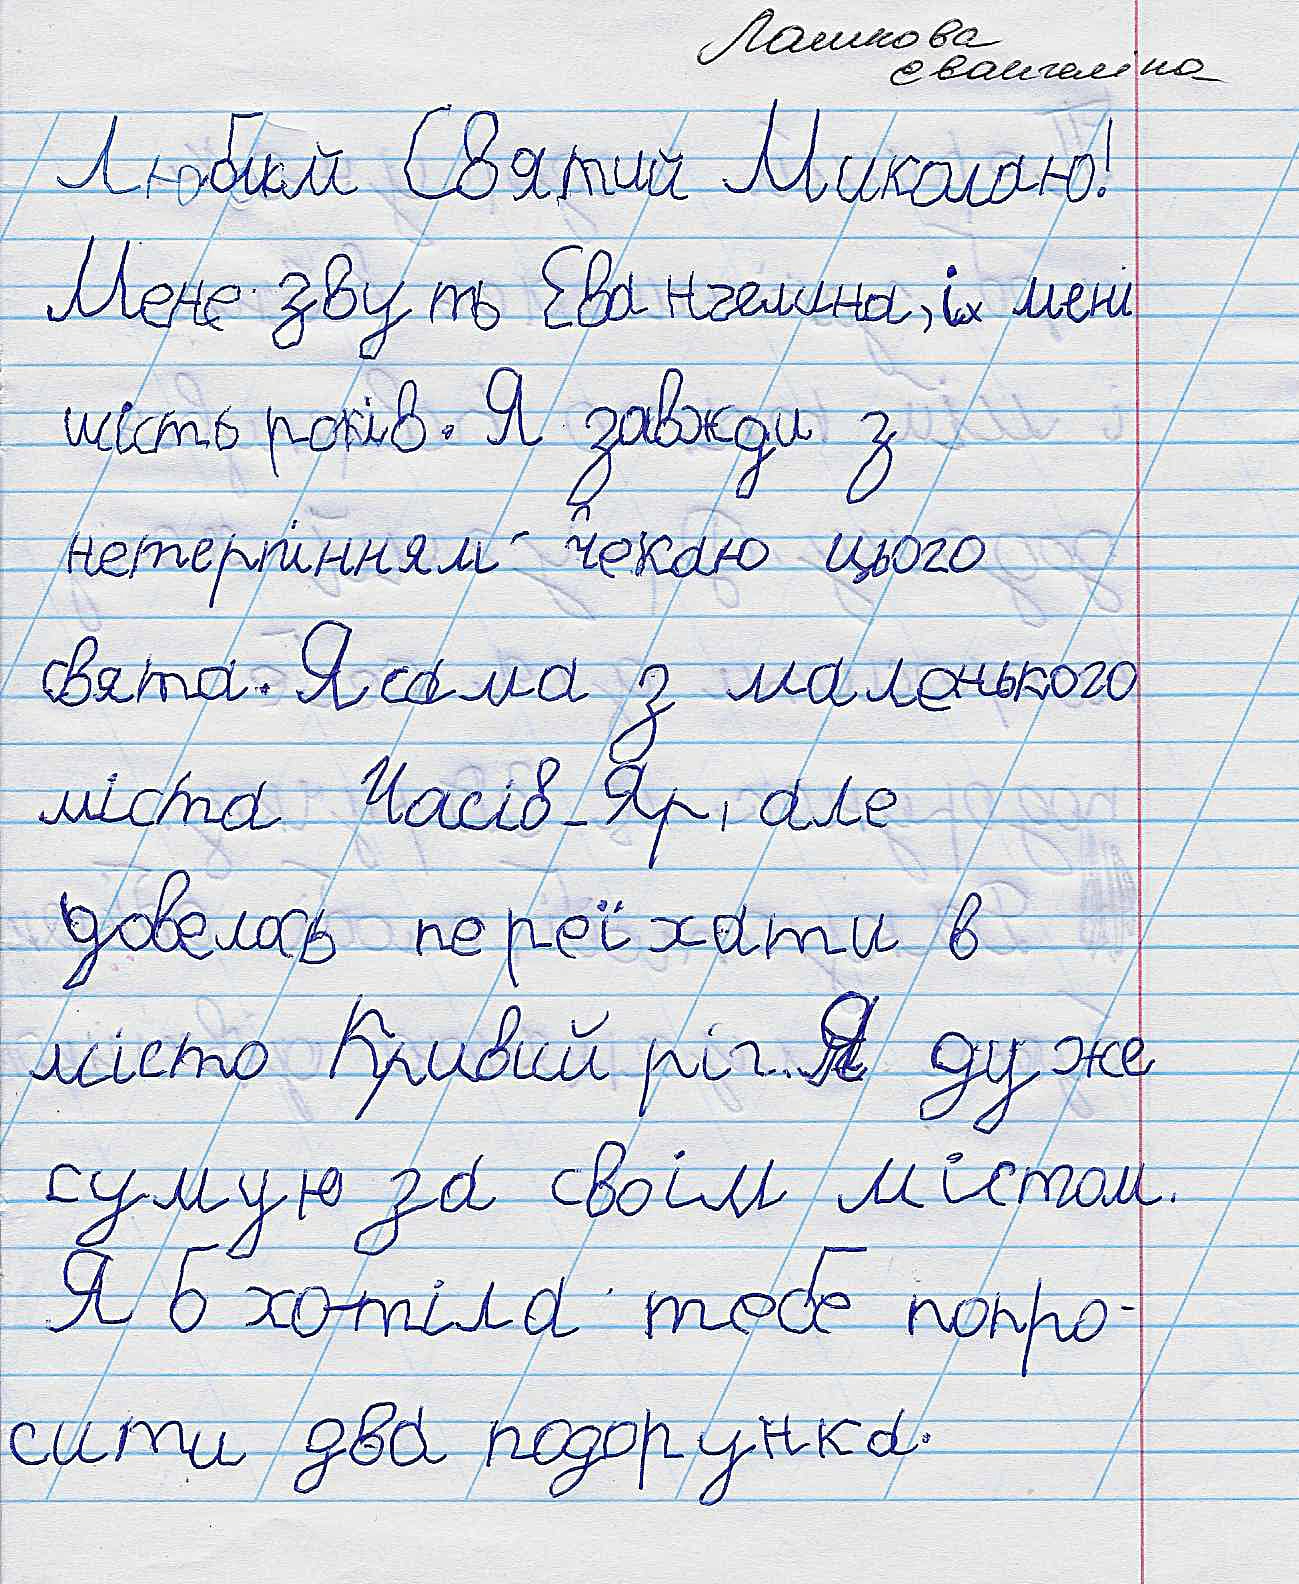 Лашкова
Євангеліна
Любий Святий Миколаю!
Мене звуть Євангелина, і мені
шість років. Я завжди з
нетерпінням чекаю цього
свята. Я сама з маленького
міста Часів-Яр, але
довелось переїхати в
місто Кривий ріг. Я дуже
сумую за своїм містом.
Я б хотіла тебе попро-
сити два подорунка.